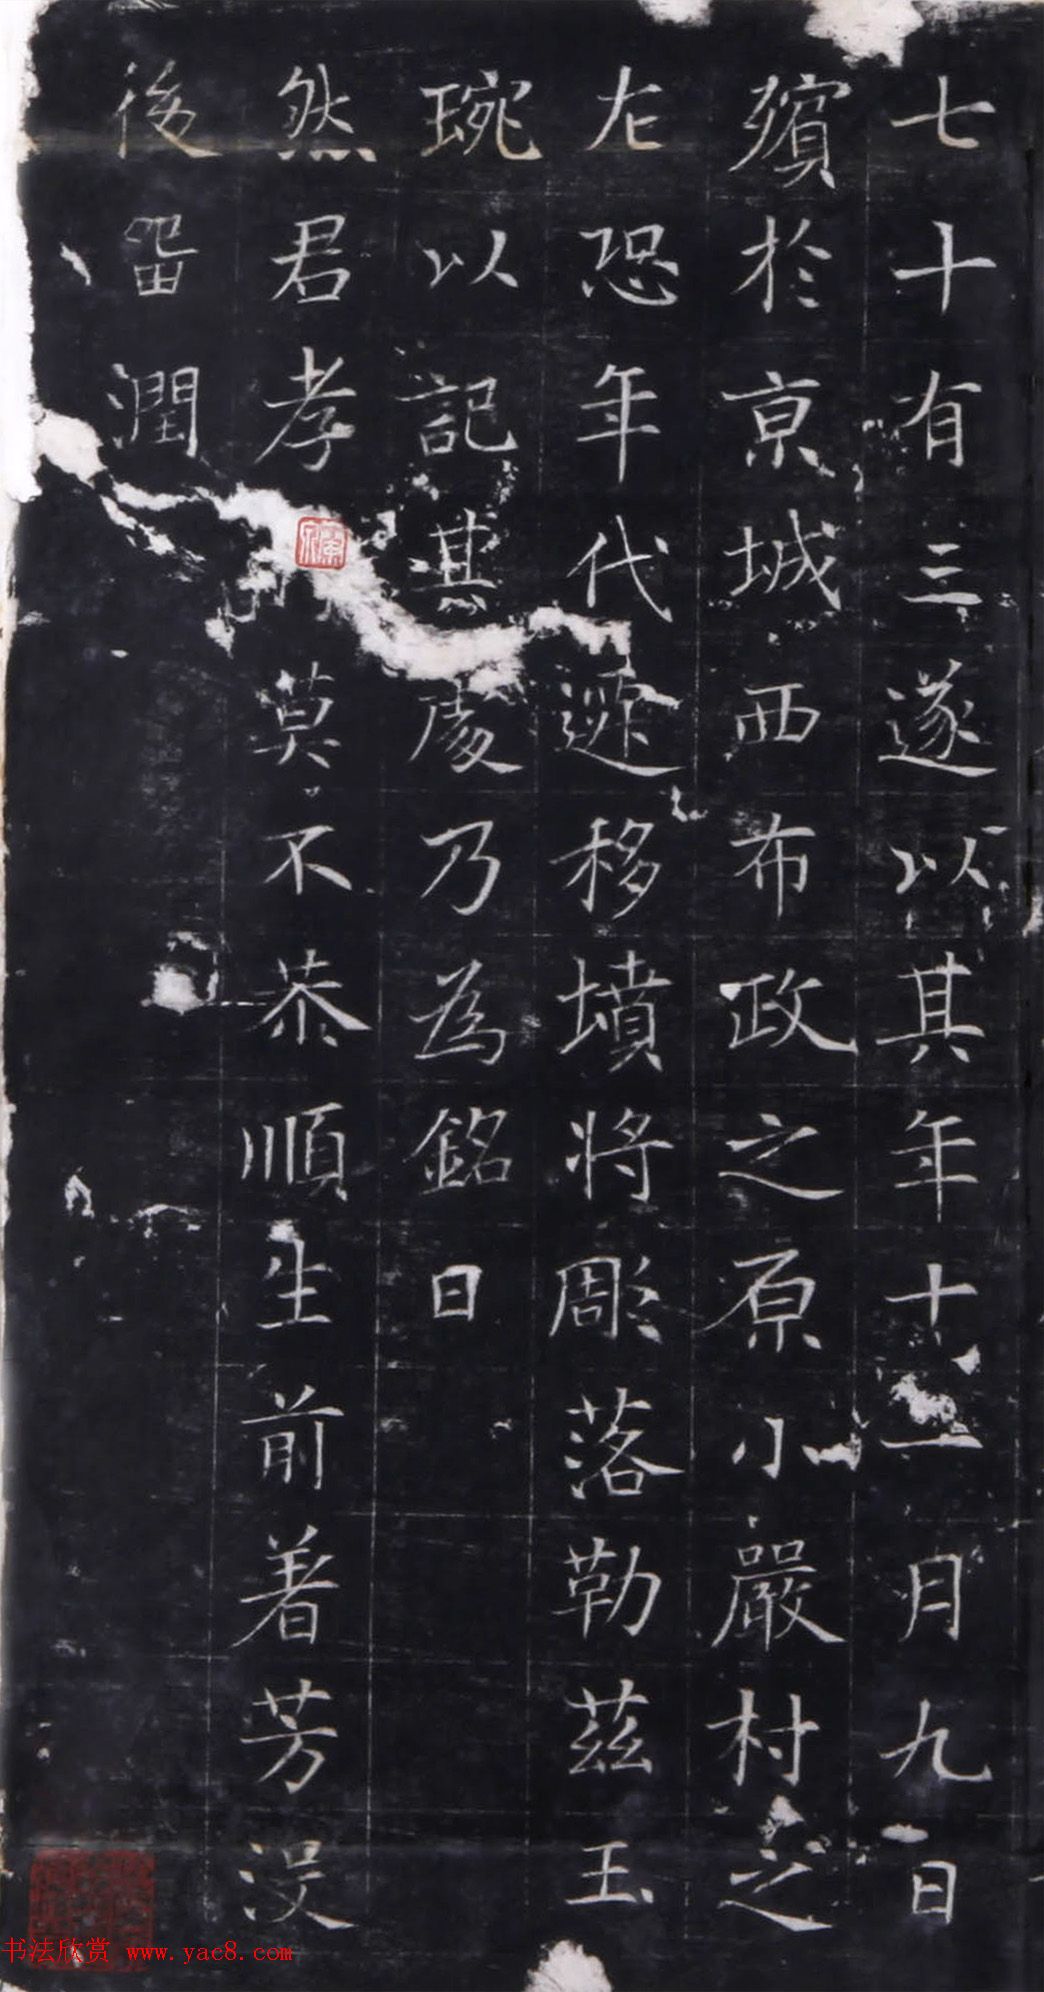 七十有三遂以其年十一月九日
殯於亰城西布政之原小嚴村之
左恐年代遞移墳將彫落勒茲玉
琬以記其處乃為銘曰
然君孝莫不恭順生前著芳没
後留潤
书法欣赏 www.yac8.com